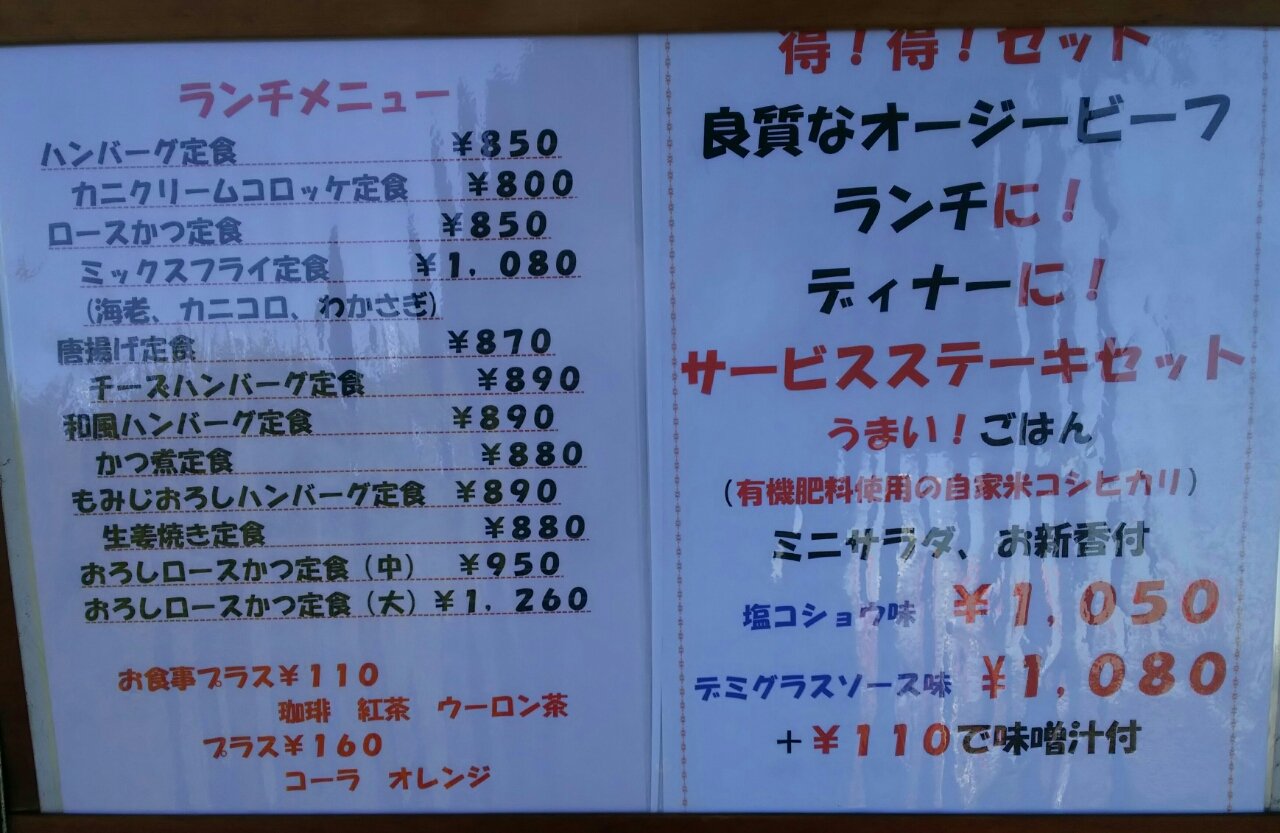 ランチメニュー
ハンバーグ定食 ¥850
カニクリームコロッケ定食 ¥800
ロースかつ定食 ¥850
ミックスフライ定食 ¥1,080
(海老、カニコロ、わかさぎ)
唐揚げ定食 ¥870
チーズハンバーグ定食 ¥890
和風ハンバーグ定食 ¥890
かつ煮定食 ¥880
もみじおろしハンバーグ定食 ¥890
生姜焼き定食 ¥880
おろしロースかつ定食(中) ¥950
おろしロースかつ定食(大) ¥1,260
お食事プラス¥110
珈琲 紅茶 ウーロン茶
プラス¥160
コーラ オレンジ
得!得!セット
良質なオージービーフ
ランチに!
ディナーに!
サービスステーキセット
うまい!ごはん
(有機肥料使用の自家米コシヒカリ)
ミニサラダ、お新香付
塩コショウ味 ¥1,050
デミグラスソース味 ¥1,080
+¥110で味噌汁付